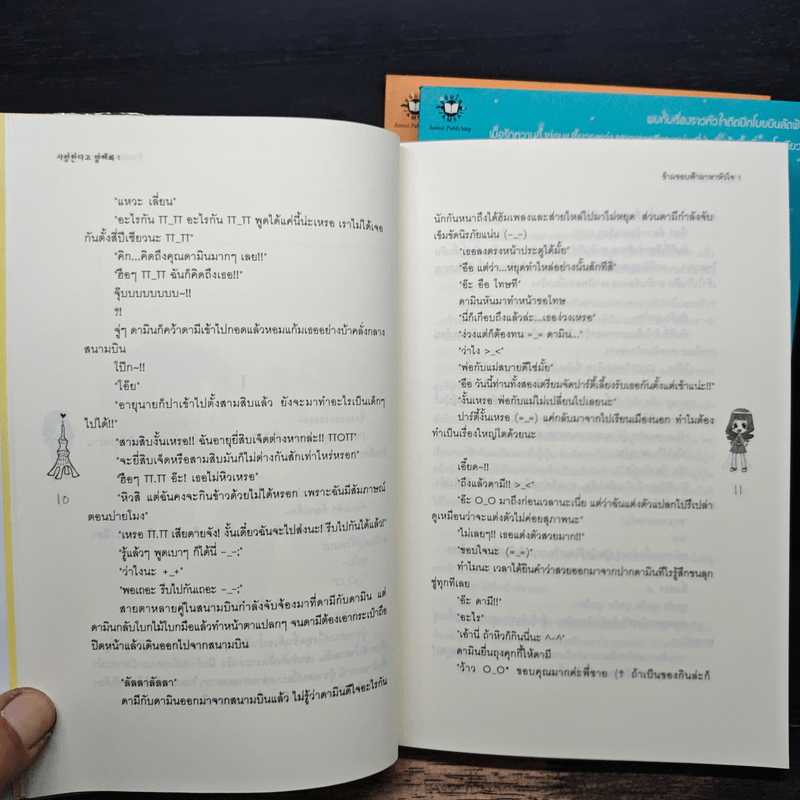 사랑한다고 말해봐 1
"แหวะ เลี่ยน"
"อะไรกัน TT_TT อะไรกัน TT_TT พูดได้แค่นี้น่ะเหรอ เราไม่ได้เจอ
กันตั้งสี่ปีเชียวนะ TT_TT"
"คิก...คิดถึงคุณดามินมากๆ เลย!!"
"ฮือๆ TT_TT ฉันก็คิดถึงเธอ!!"
จุ๊บบบบบบบบ~!!
?!
จู่ๆ ดามินก็คว้าดามีเข้าไปกอดแล้วหอมแก้มเธออย่างบ้าคลั่งกลาง
สนามบิน
โป๊ก~!!
"โอ๊ย"
"อายุนายก็ปาเข้าไปตั้งสามสิบแล้ว ยังจะมาทำอะไรเป็นเด็กๆ
ไปได้!!"
"สามสิบงั้นเหรอ!! ฉันอายุยี่สิบเจ็ดต่างหากล่ะ!! TTOTT"
"จะยี่สิบเจ็ดหรือสามสิบมันก็ไม่ต่างกันสักเท่าไหร่หรอก"
"ฮือๆ TT.TT อ๊ะ! เธอไม่หิวเหรอ"
"หิวสิ แต่ฉันคงจะกินข้าวด้วยไม่ได้หรอก เพราะฉันมีสัมภาษณ์
ตอนบ่ายโมง"
"เหรอ TT.TT เสียดายจัง! งั้นเดี๋ยวฉันจะไปส่งนะ! รีบไปกันได้แล้ว!"
"รู้แล้วๆ พูดเบาๆ ก็ได้นี่ -_-;"
"ว่าไงนะ +_+"
"พอเถอะ รีบไปกันเถอะ -_-;"
สายตาหลายคู่ในสนามบินกำลังจับจ้องมาที่ดามีกับดามิน แต่
ดามินกลับโบกไม้โบกมือแล้วทำหน้าตาแปลกๆ จนดามีต้องเอากระเป๋าถือ
ปิดหน้าแล้วเดินออกไปจากสนามบิน
"ลัลลาลัลลา"
ดามีกับดามินออกมาจากสนามบินแล้ว ไม่รู้ว่าดามินดีใจอะไรกัน
10
ข้ามขอบฟ้ามาหาหัวใจ 1
นักกันหนาถึงได้ฮัมเพลงและส่ายไหล่ไปมาไม่หยุด ส่วนดามีกำลังจับ
เข็มขัดนิรภัยแน่น (-_-)
"เธอลงตรงหน้าประตูได้มั้ย"
"อือ แต่ว่า...หยุดทำไหล่อย่างนั้นสักทีสิ"
"อ๊ะ อือ โทษที"
ดามินหันมาทำหน้าขอโทษ
"นี่ก็เกือบถึงแล้วล่ะ...เธอง่วงเหรอ"
"ง่วงแต่ก็ต้องทน =_= ดามิน..."
"ว่าไง >_<"
"พ่อกับแม่สบายดีใช่มั้ย"
"อือ วันนี้ท่านทั้งสองเตรียมจัดปาร์ตี้เลี้ยงรับเธอกันตั้งแต่เช้าแน่ะ!!"
"งั้นเหรอ พ่อกับแม่ไม่เปลี่ยนไปเลยนะ"
ปาร์ตี้งั้นเหรอ (=_=) แค่กลับมาจากไปเรียนเมืองนอก ทำไมต้อง
ทำเป็นเรื่องใหญ่โตด้วยนะ
เอี๊ยด~!!
"ถึงแล้วดามี!! >_<"
"อ๊ะ O_O มาถึงก่อนเวลานะเนี่ย แต่ว่าฉันแต่งตัวแปลกไปรึเปล่า
ดูเหมือนว่าจะแต่งตัวไม่ค่อยสุภาพนะ"
"ไม่เลย!! เธอแต่งตัวสวยมาก!!"
"ขอบใจนะ (=_=)"
ทำไมนะ เวลาได้ยินคำว่าสวยออกมาจากปากดามินทีไรรู้สึกขนลุก
ซู่ทุกทีเลย
"อ๊ะ ดามี!!"
"อะไร"
"เอ้านี่ ถ้าหิวก็กินนี่นะ ^-^"
ดามินยื่นถุงคุกกี้ให้ดามี
"ว้าว O_O" ขอบคุณมากค่ะพี่ชาย (? ถ้าเป็นของกินล่ะก็
11
Jamsai Publishing
Jamsai Publishing
พบกับเรื่องราวหัวใจติดปีกโบยบินลัดฟ้า